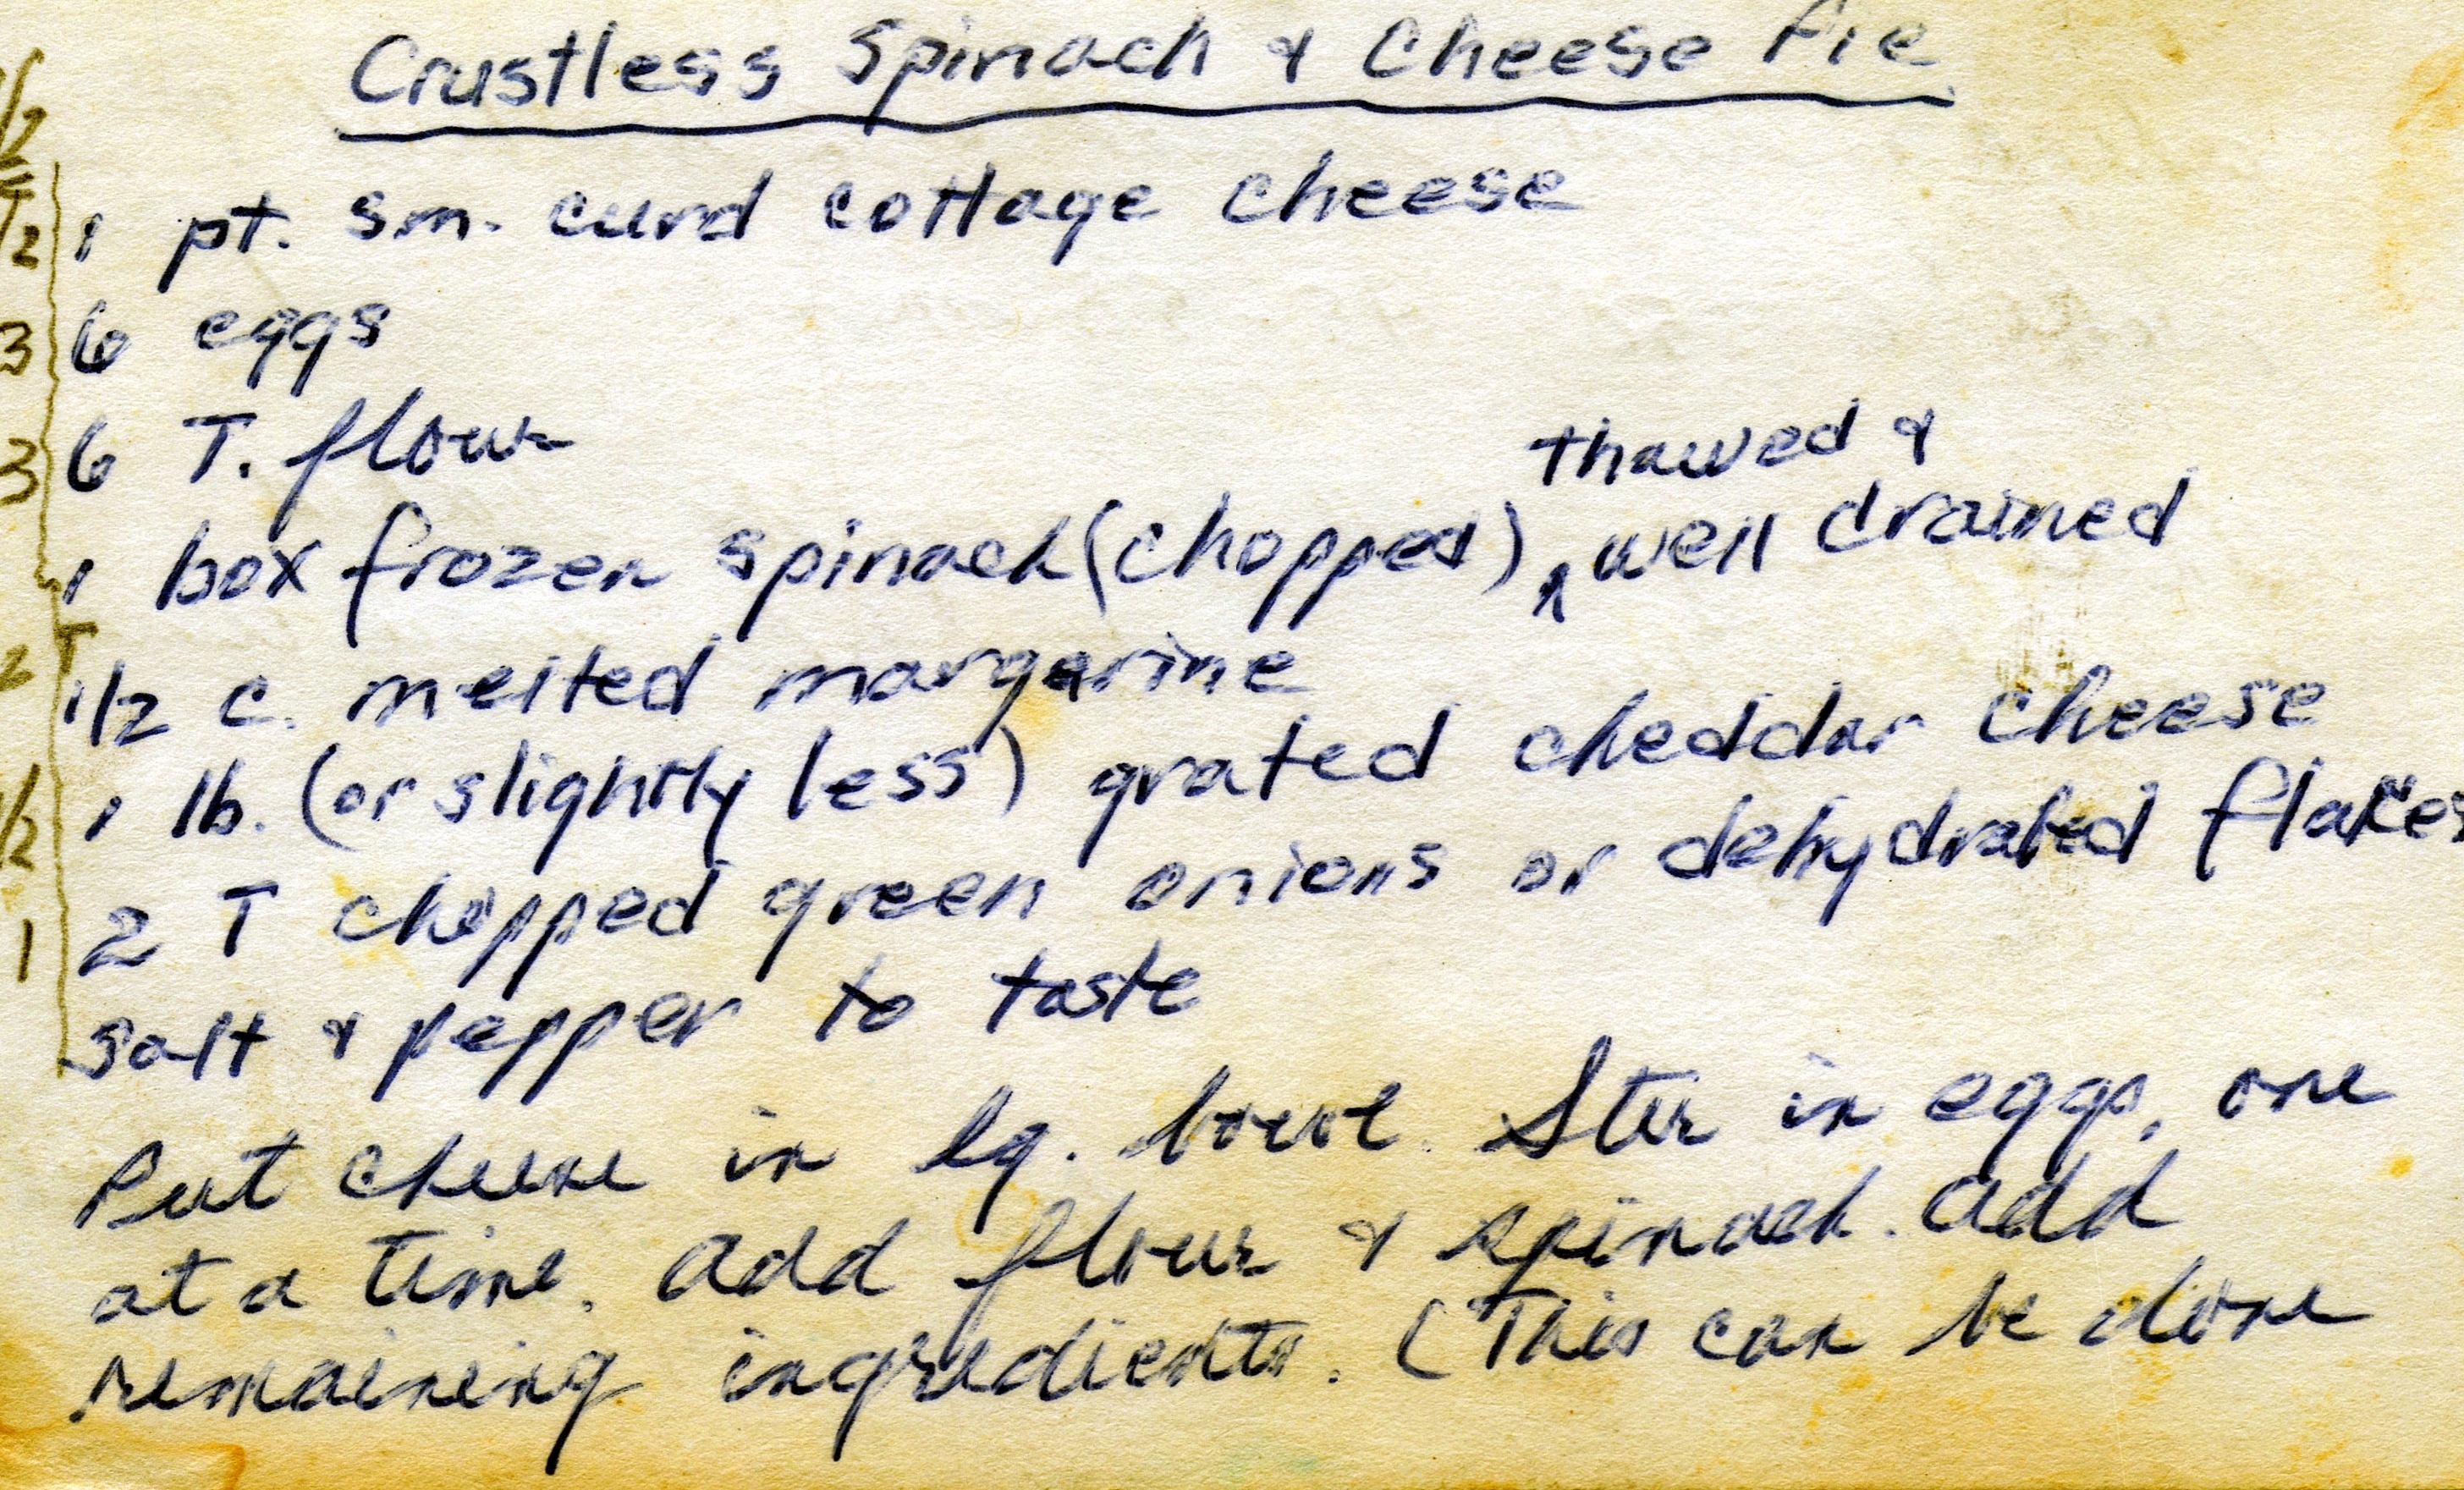 Crustless Spinach & Cheese Pie
1/2
1/2 1 pt. sm. curd cottage cheese
3 6 eggs
3 6 T. flour
thawed &
1 box frozen spinach (chopped) ^ well drained
2 T
1/2 c. melted margarine
1/2 1 lb. (or slightly less) grated cheddar cheese
1 2 T chopped green onions or dehydrated flakes
salt & pepper to taste
Put cheese in lg. bowl. Stir in eggs, one
at a time. Add flour & spinach. Add
remaining ingredients. (This can be done